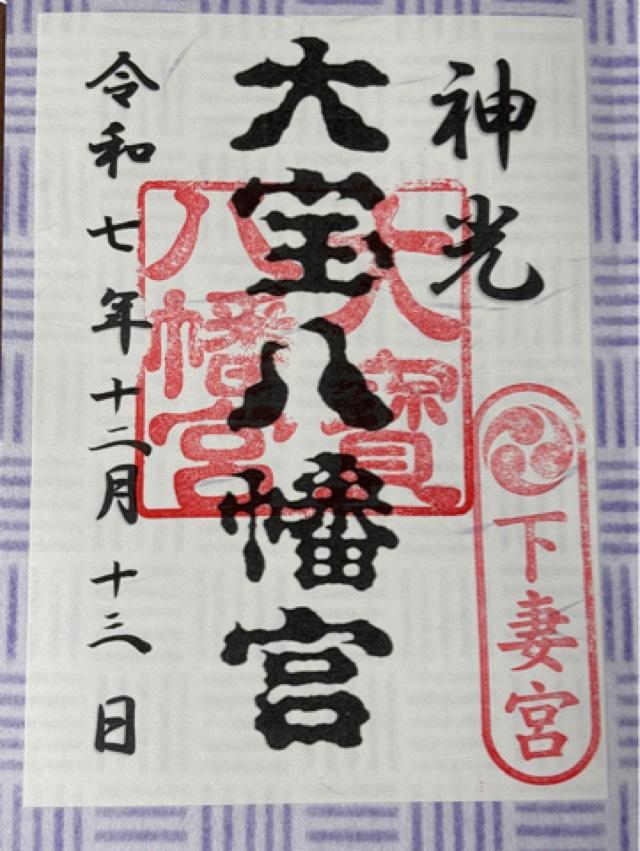 神光
下妻宮
大宝八幡宮
大寳
八幡宮
令和七年十二月十三日